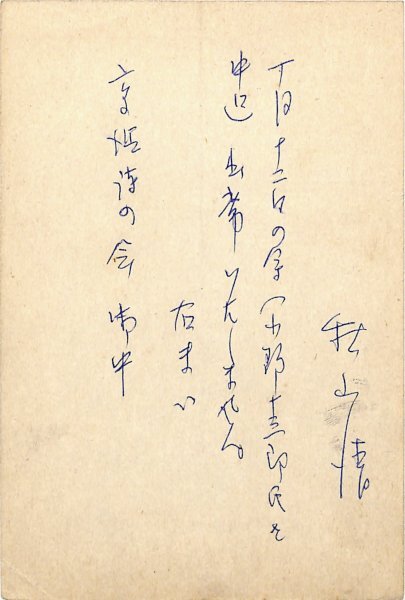 秋山清
十二日の会(小野十三郎氏を
中心)出席いたしません
右まで
京浜詩の会 御中